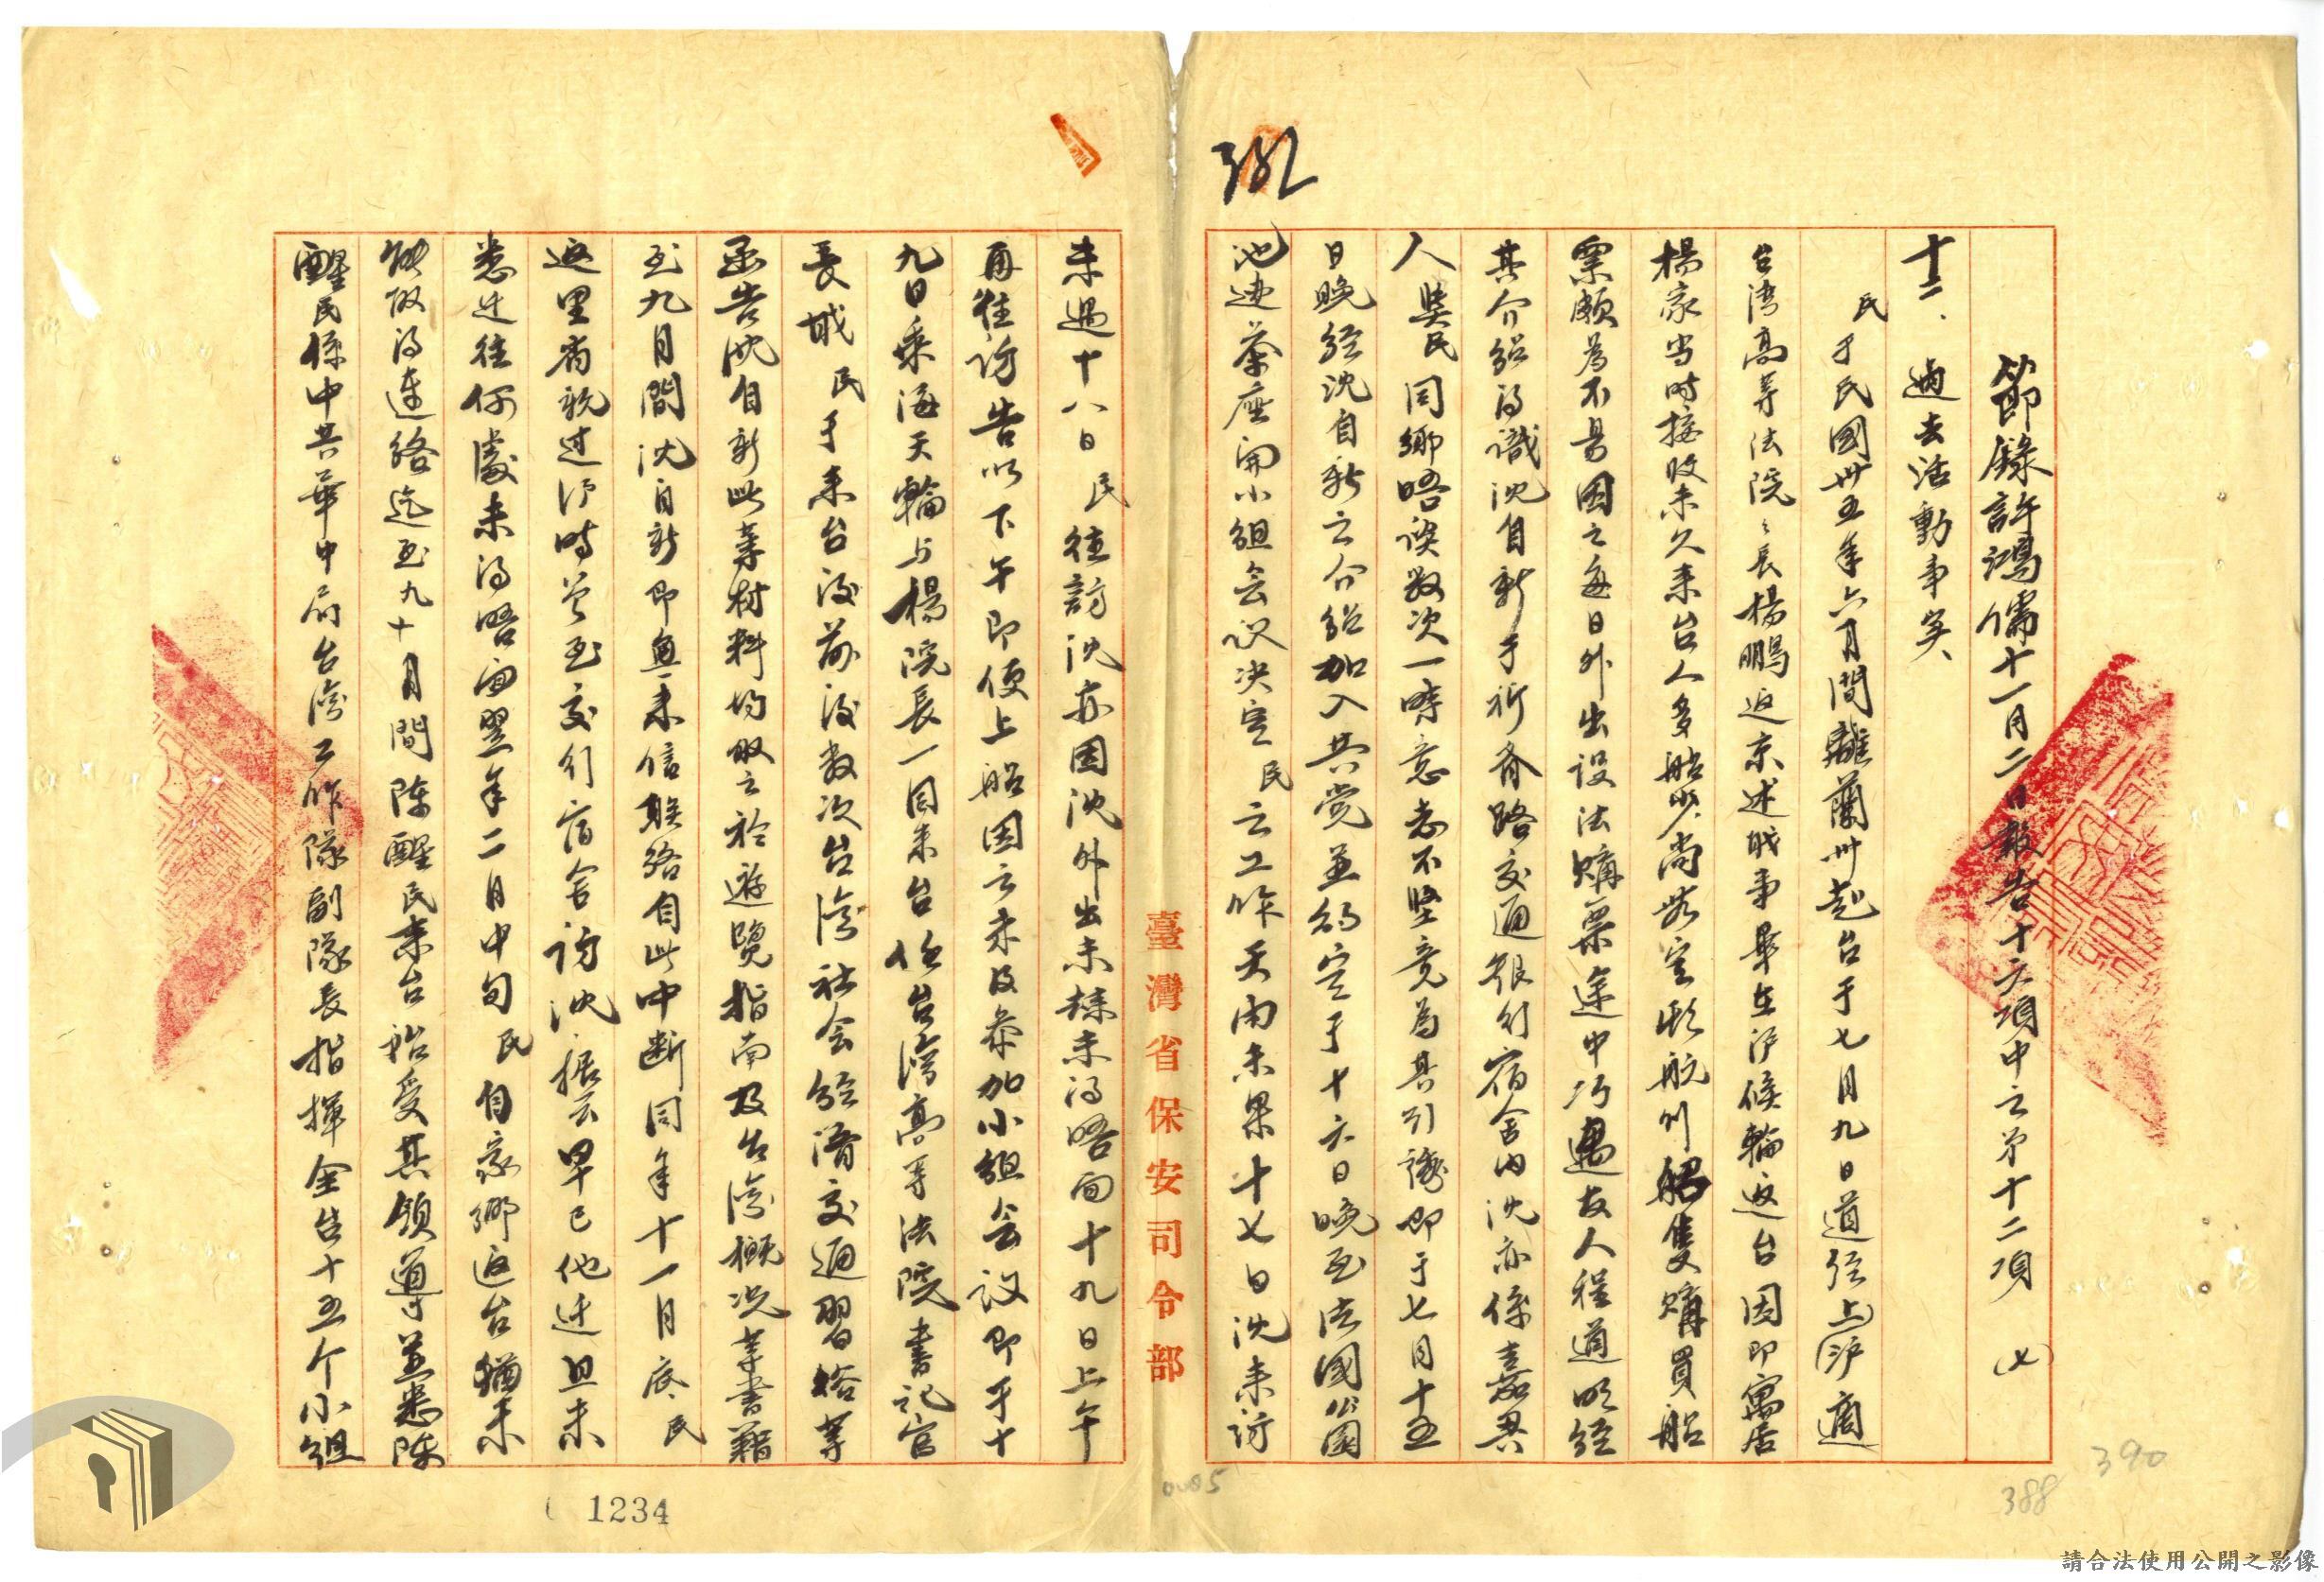 節錄許鴻儒十一月二日報告十六項中之第十二項 (七)
十二、過去活動事實
民于民國卅五年六月間離蘭州赴台于七月九日道經上滬適
台湾高等法院々長楊鵬返京述職事畢在沪候輪返台因即寓居
楊家当时接收未久来台人多船少尚無定形航行船隻購買船
票頗為不易因之每日外出设法購票途中巧遇友人程道明经
其介紹得識沈自新于祈齐路交通银行宿舍内沈亦係嘉兴
人與民同鄉晤談数次一時意志不坚竟為其引誘即于七月十五
日晚经沈自新之介紹加入共党並約定于十六日晚至法國公園
池边茶座開小组会议决定民之工作天雨未果十七日沈来访
未遇十八日民往訪沈亦因沈外出未歸未得晤面十九日上午
再往访告以下午即便上船因之未及参加小组会议即于十
九日乘海天輪与楊院長一同来台任台湾高等法院書記官
長職民于来台後前後数次台湾社会经济交通習俗等
函告沈自新此等材料均取之於遊覽指南及台湾概况等書籍
至九月間沈自新即無来信联络自此中断同年十一月底民
返里省親过沪时曾至交行宿舍访沈据云早已他迁且未
悉迁往何處未得晤面翌年二月中旬民自家鄉返台猶未
能取得連絡迄至九十月間陳醒民来台始受其領導並悉陳
醒民係中共華中局台湾工作隊副隊長指揮全台十五个小组
臺灣省保安司令部
382
388
390
0005
1234
請合法使用公開之影像